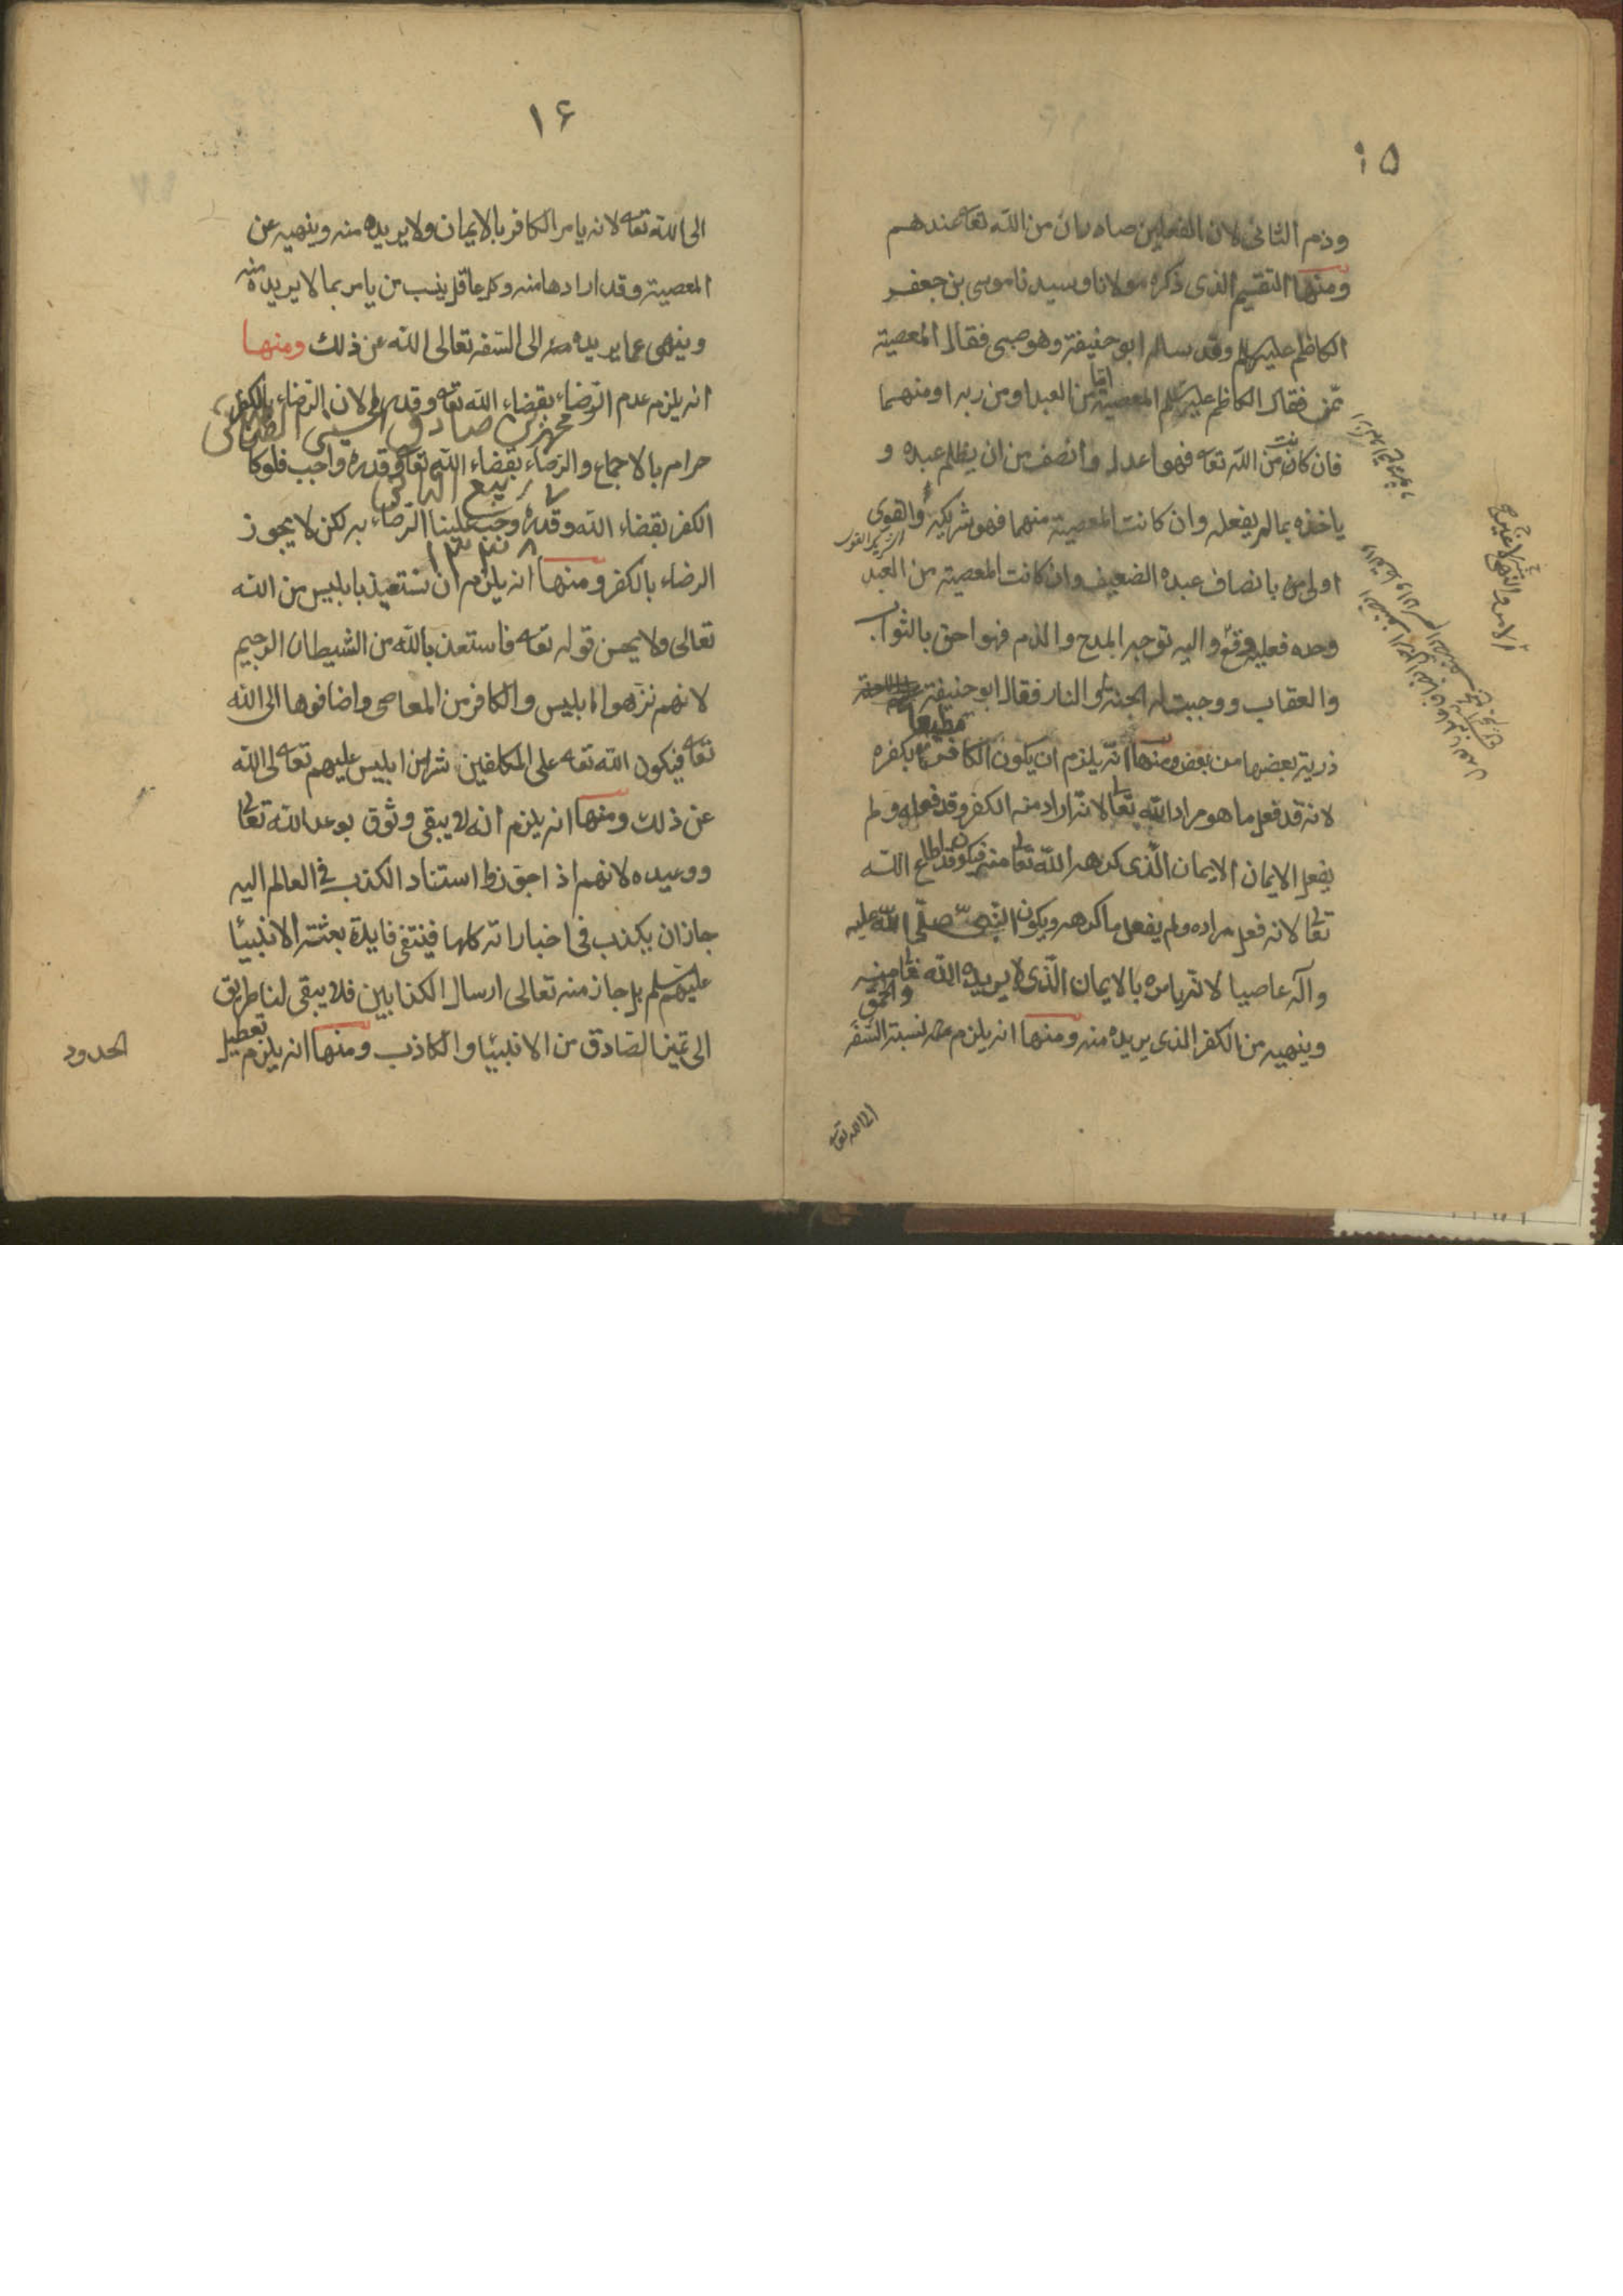 ١۵
وذم الثانى لان الفعلين صادران من الله تعه عندهم
ومنها التقسيم الذى ذكره مولانا وسيدنا موسى بن جعفر
الكاظم عليهم وقد ساله ابو حنيفة وهو صبى فقال المعصية
ممن فقال الكاظم عليه سلم المعصية اما من العبد او من ربه او منهما
فان كانت من الله تعه فهو اعدل وانصف من ان يظلم عبده و
ياخذه بما لم يفعله وان كانت المعصية منهما فهو شريكه والقوى
اولى من بانصاف عبده الضعيف وان كانت المعصية من العبد
وحده فعليه وقع واليه توجه المدح والذم فهو احق بالثواب
والعقاب ووجبت له الجنة والنار فقال ابو حنيفة
ذرية بعضها من بعض ومنها انه يلزم ان يكون الكافر مطيعا بكفره
لانه قد فعل ما هو مراد الله تعالى لانه اراد منه الكفر وقد فعله ولم
يفعل الايمان الايمان الذى كرهه الله تعالى منه فيكون قد اطاع الله
تعالى لانه فعل مراده ولم يفعل ما كرهه ويكون النبى صلى الله عليه
وآله عاصيا لانه يامره بالايمان الذى لا يريده الله تعالى منه
وينهيه من الكفر الذى يريده منه ومنها انه يلزم نسبة السفه والحمق
الى الله تعه
الامر والنهى
١۶
الى الله تعه لانه يامر الكافر بالايمان ولا يريده منه وينهيه عن
المعصية وقد ارادها منه وكل عاقل ينسب من يامر بما لا يريده منه
وينهى عما يريده منه الى السفه تعالى الله عن ذلك ومنها
انه يلزم عدم الرضاء بقضاء الله تعه وقدره لان الرضاء بالكفر
محمد بن صادق الحسينى
حرام بالاجماع والرضاء بقضاء الله تعه وقدره واجب فلو كا
ربيع
الكفر بقضاء الله وقدره وجب علينا الرضاء به لكن لا يجوز
الرضاء بالكفر ومنها انه يلزم ان نستعيذ بابليس من الله
تعالى ولا يحسن قوله تعه فاستعذ بالله من الشيطان الرجيم
لانهم نزهوا ابليس والكافر من المعاصى واضافوها الى الله
تعه فيكون الله تعه على المكلفين شرا من ابليس عليهم تعالى الله
عن ذلك ومنها انه يلزم انه لا يبقى وثوق بوعد الله تعالى
ووعيده لانهم اذا جوزوا استناد الكذب فى العالم اليه
جاز ان يكذب فى اخباراته كلها فينتفى فايدة بعثته الانبيئا
عليهم سلم بل جاز منه تعالى ارسال الكذابين فلا يبقى لنا طريق
الى تميز الصادق من الانبيئا والكاذب ومنها انه يلزم تعطيل
الحدود